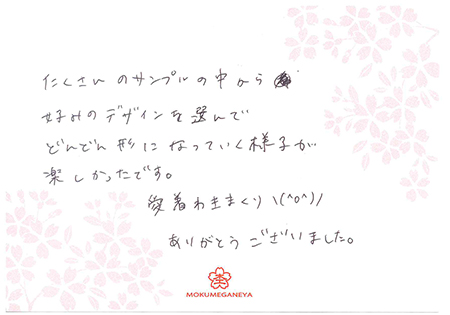 たくさんのサンプルの中から
好みのデザインを選んで
どんどん形になっていく様子が
楽しかったです。
愛着わきまくり \(^o^)/
ありがとうございました。
MOKUMEGANEYA